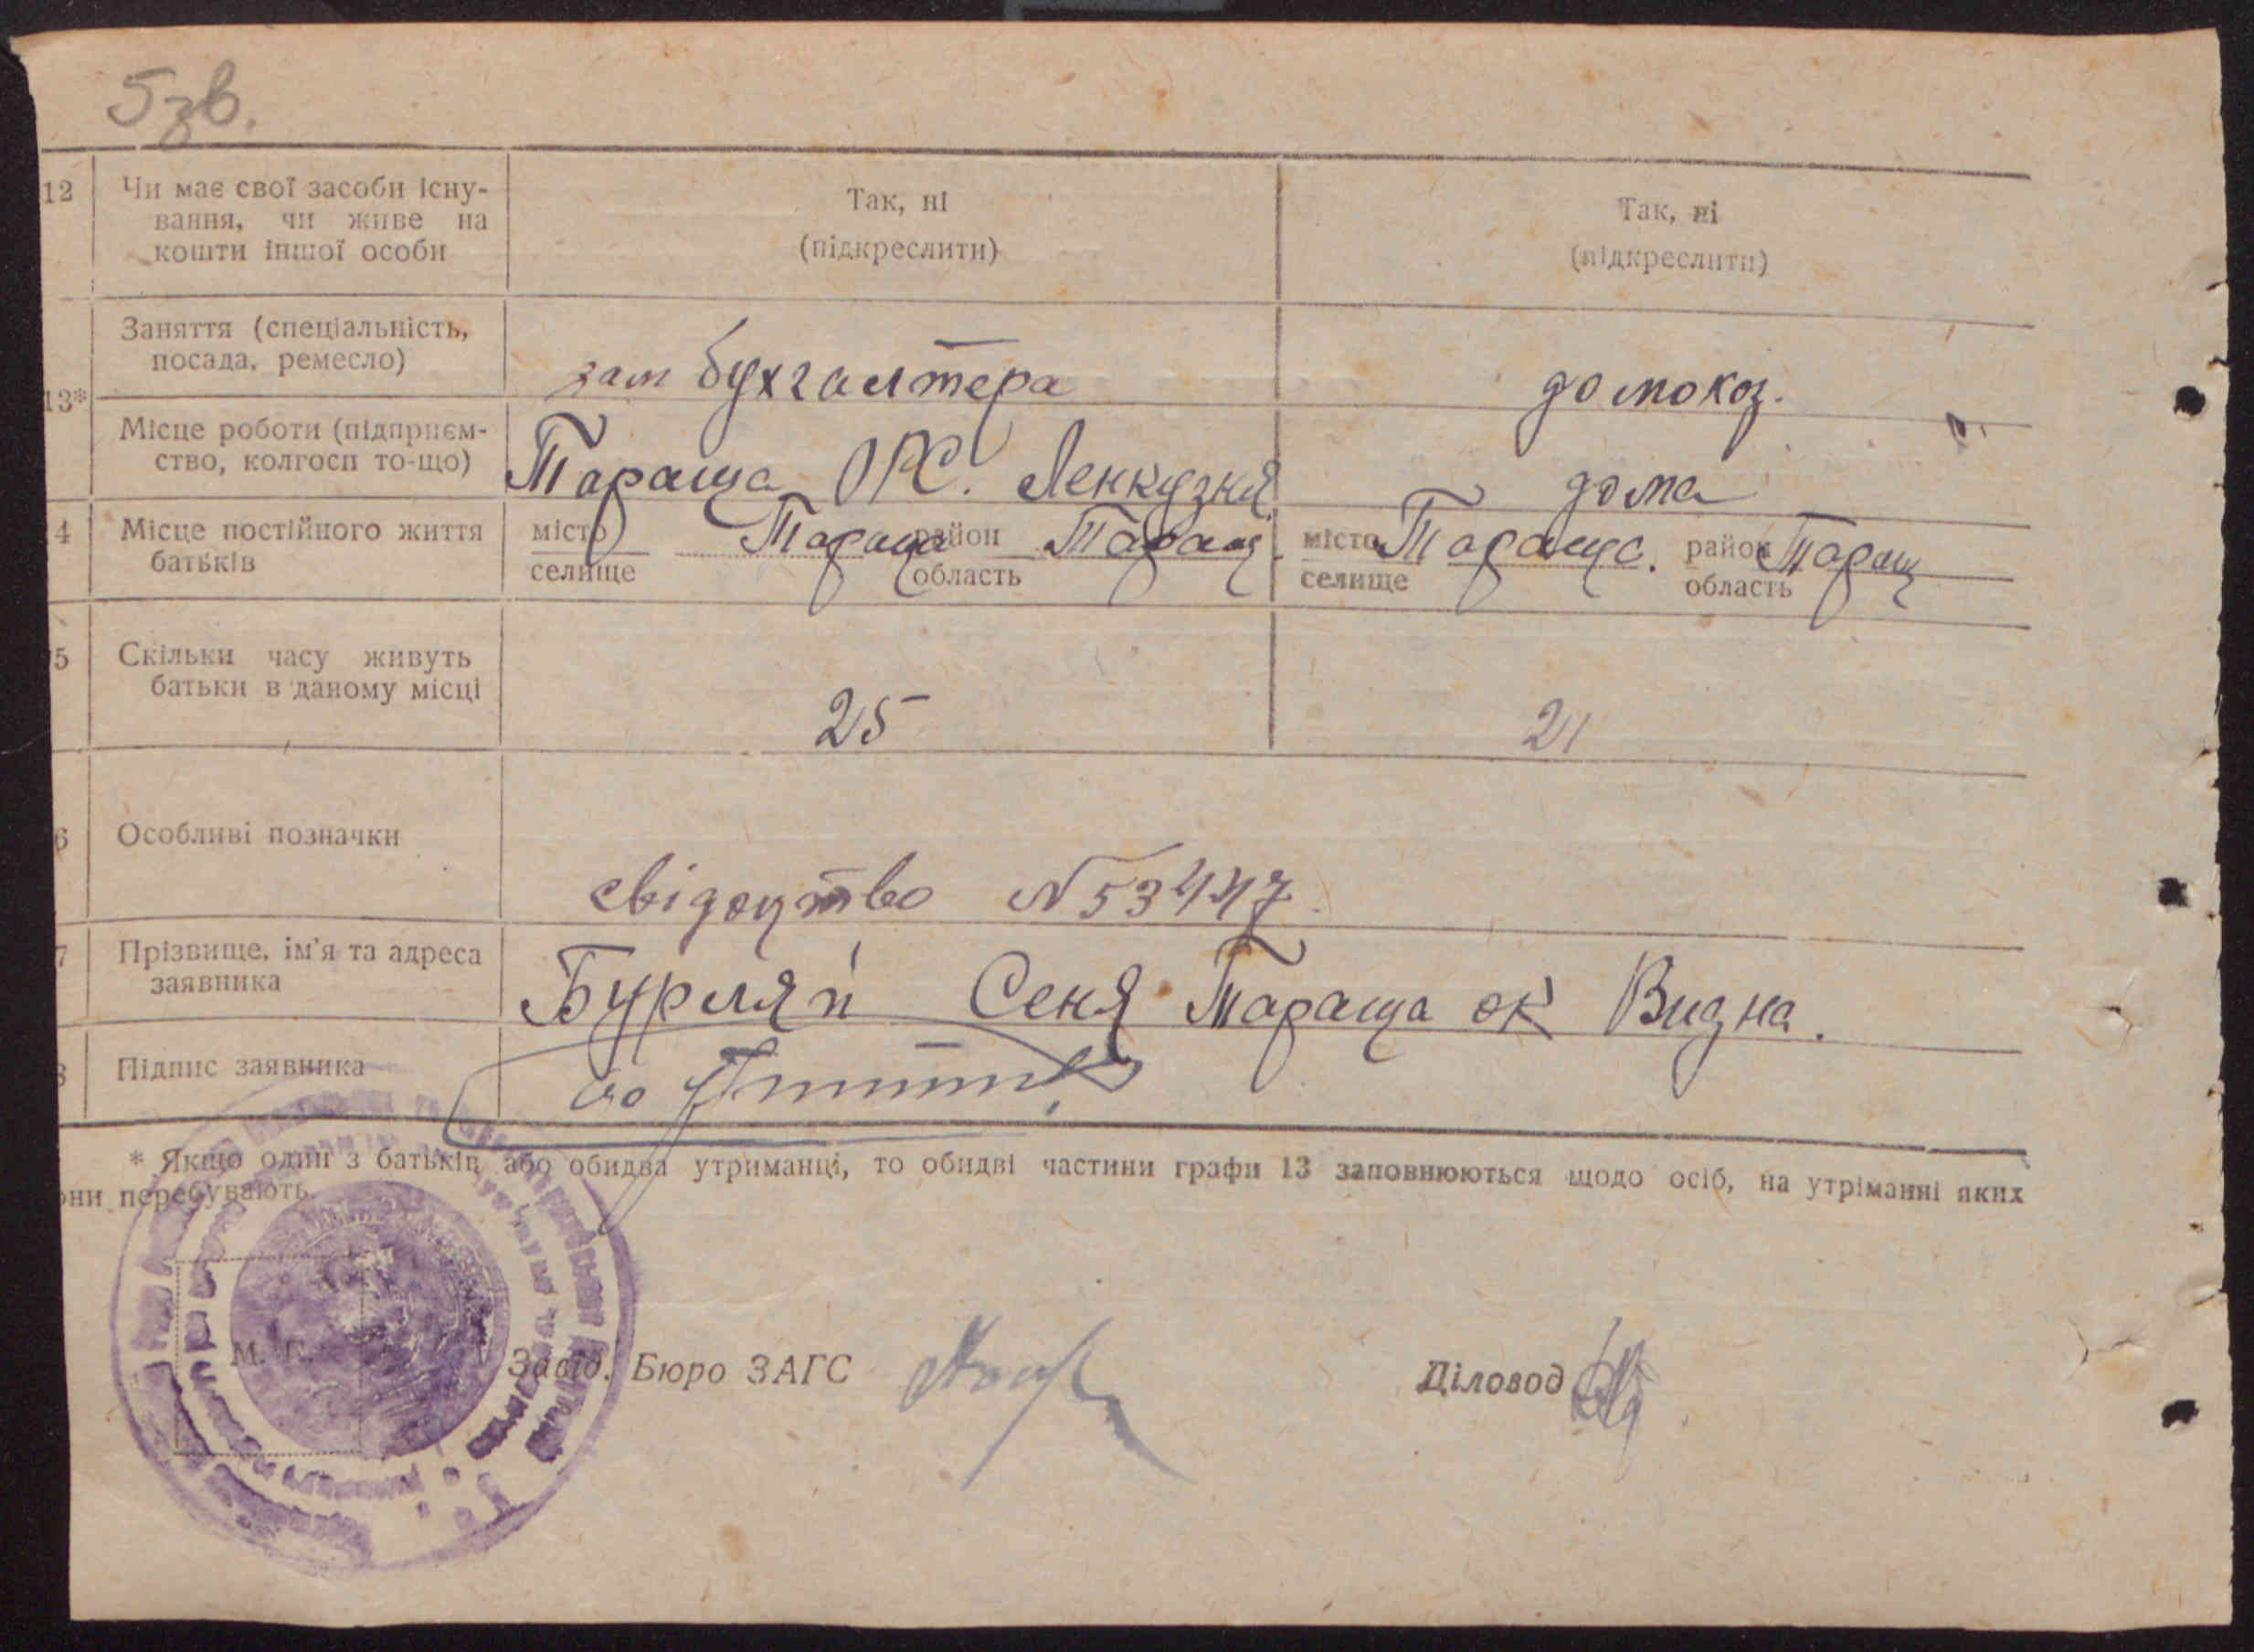 5 зв.
12 Чи має свої засоби існу-
вання, чи живе на
кошти іншої особи
Так, ні
(підкреслити)
Так, ні
(підкреслити)
13*
Заняття (спеціальність,
посада, ремесло)
зам бухгалтера
домохоз.
Місце роботи (підприєм-
ство, колгосп то-що)
Тараща ОРС. Ленкузня
дома
4 Місце постійного життя
батьків
місто Тараща район Таращ.
селище область
місто Тараща. район Таращ
селище область
5 Скільки часу живуть
батьки в даному місці
25
21
6 Особливі позначки
свідоцтво N 53447.
7 Прізвище, ім'я та адреса
заявника
Бурлях Сеня Тараща ок Видна.
8 Підпис заявника
* Якщо один з батьків або обидва утриманці, то обидві частини графи 13 заповнюються щодо осіб, на утріманні яких
они перебувають.
М. П.
Завід. Бюро ЗАГС
Діловод